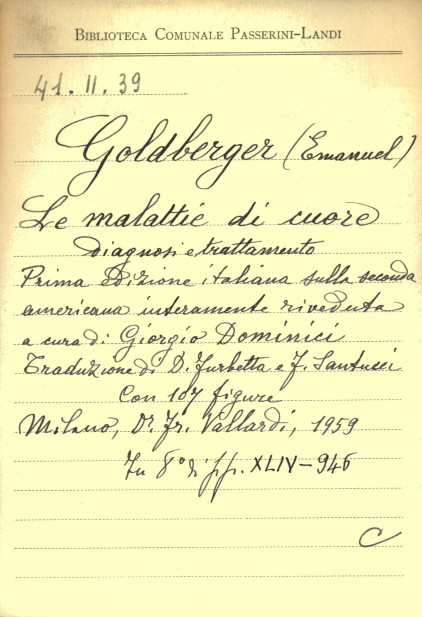 BIBLIOTECA COMUNALE PASSERINI-LANDI
41. II. 39
Goldberger (Emanuel)
Le malattie di cuore
diagnosi e trattamento
Prima edizione italiana sulla seconda
americana interamente riveduta
a cura di Giorgio Dominici
Traduzione di D. Furbetta e F. Santucci
Con 107 figure
Milano, Dr. Fr. Vallardi, 1959
In 8° di pp. XLIV-946
C